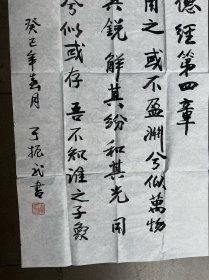 德经第四章
用之或不盈渊兮似萬物
其锐解其纷和其光同
兮似或存吾不知谁之子象
癸巳年春月
丁振武書